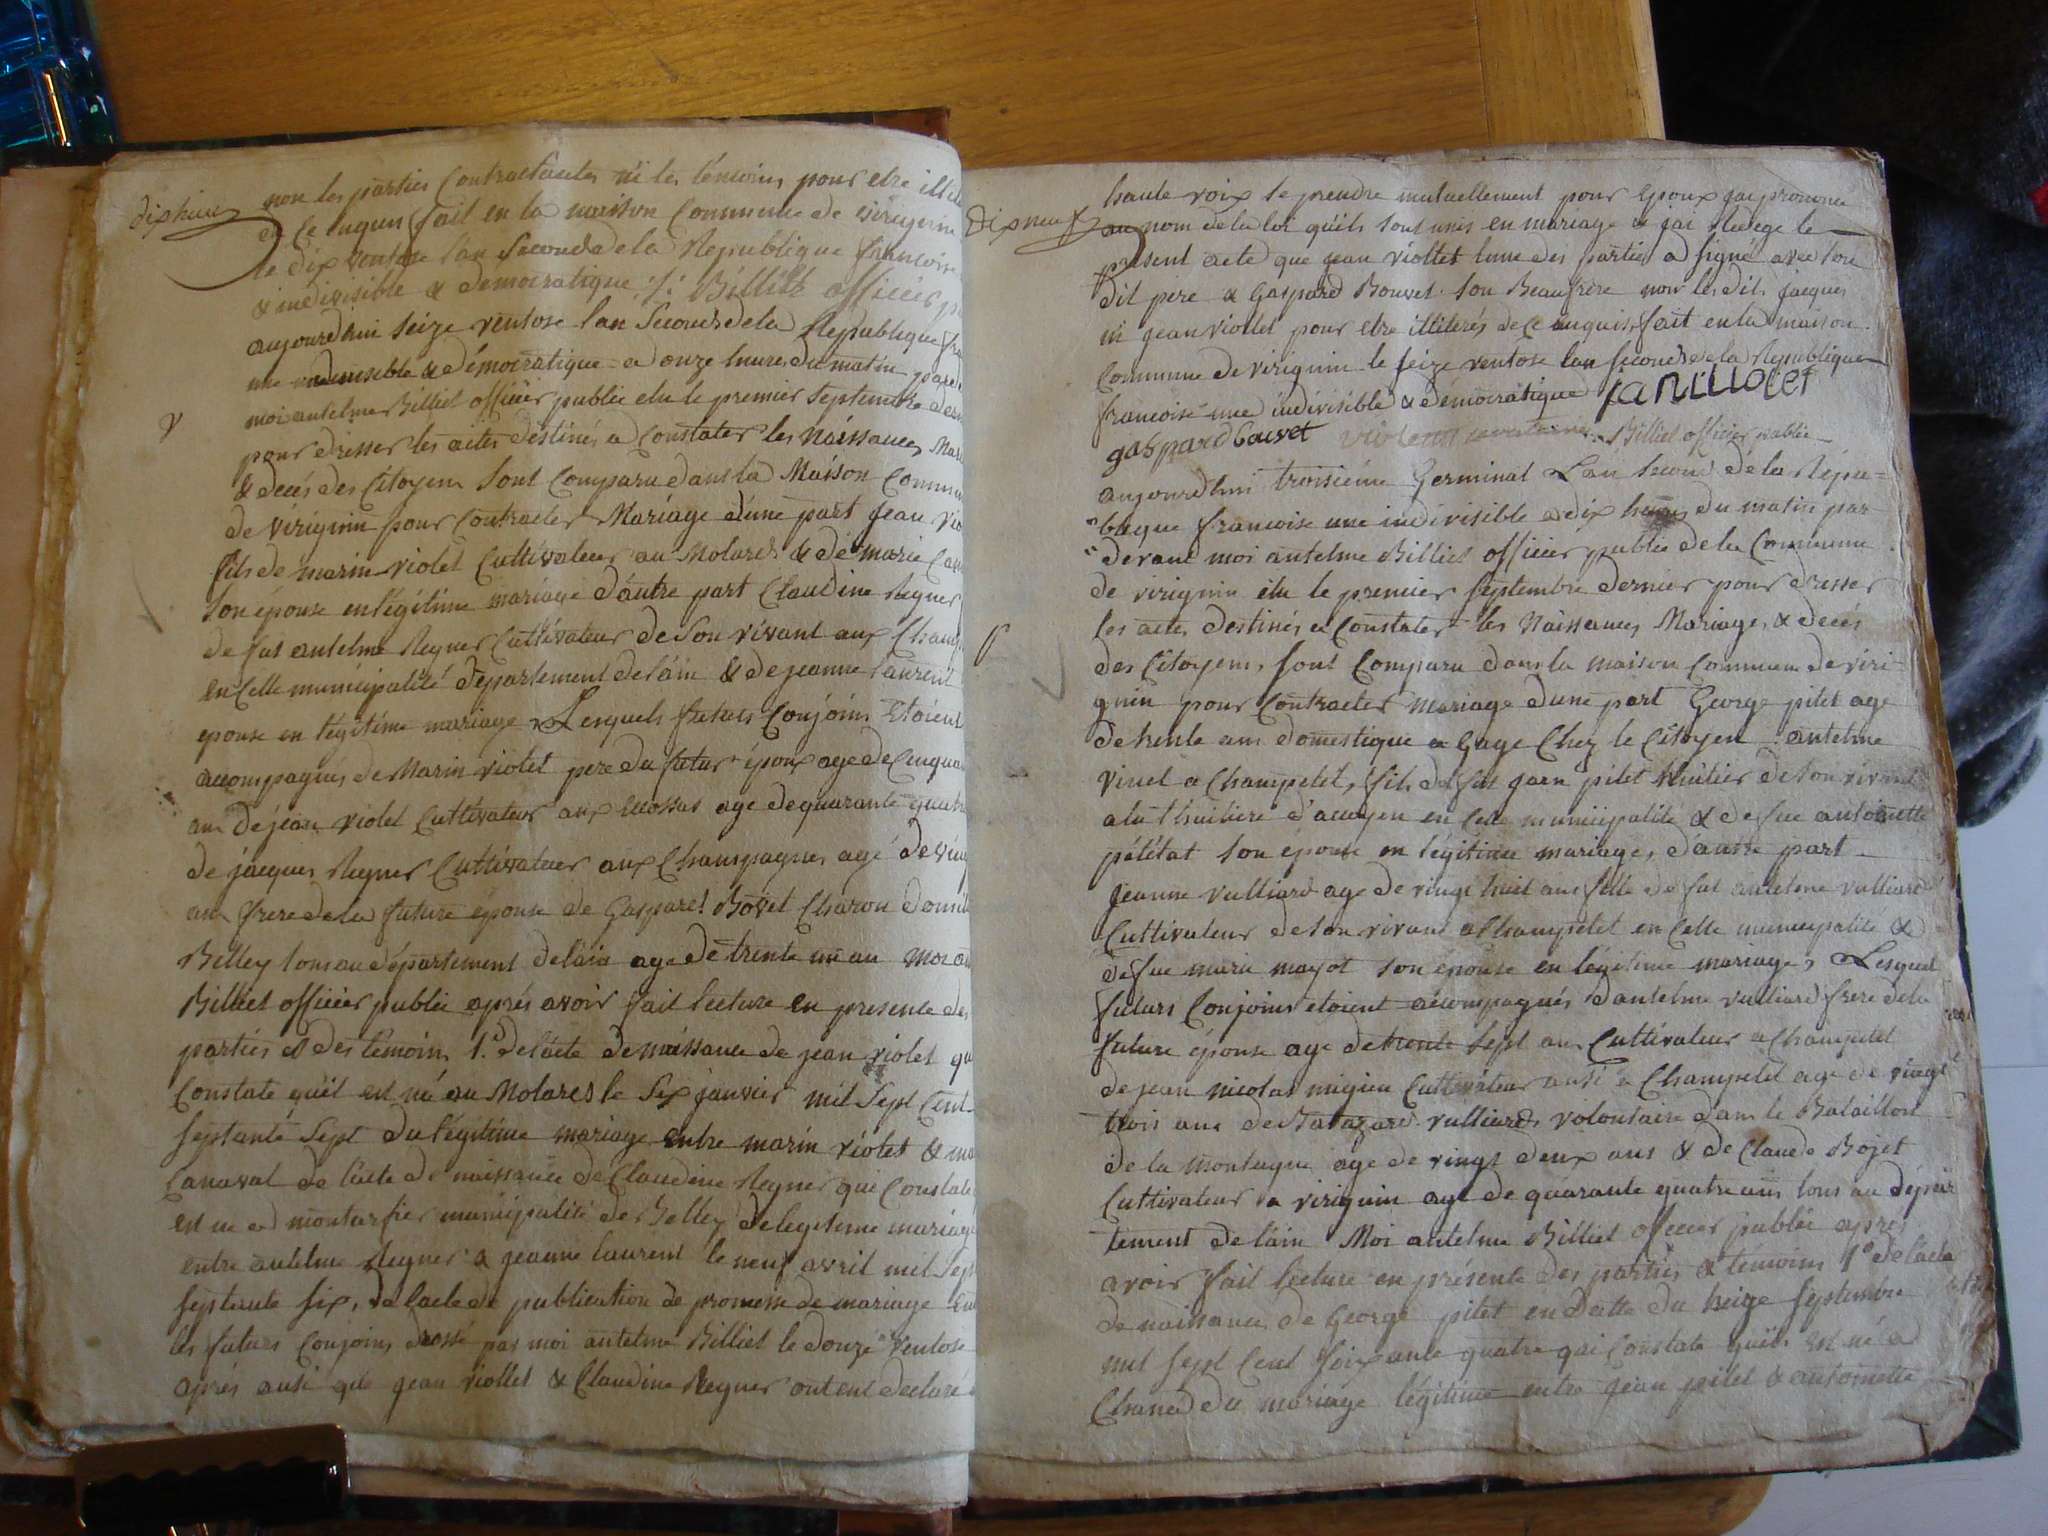 dixhuit
non les parties Contractantes ni les témoins pour etre illit
de ce enquis fait en la maison Commune de virignin
le dix ventose lan Second de la Republique francoise
& indivisible & démocratique Billiet officier p
aujourdhui seize ventose lan Second de la Republique fra
une indivisible & démocratique a onze heure du matin pard
moi antelme Billiet officier public elu le premier Septembre der
pour dresser les actes destinés a Constater les Naissances Mar
& decés des Citoyens Sont Comparu dans la Maison Commu
de virignin pour Contracter Mariage d'une part Jean vio
fils de marin violet Cultivateur au Molard & de marie Ca
son épouse en légitime mariage d'autre part Claudine Reyner
de fut antelme Reyner Cultivateur de Son vivant aux Champ
en Celle municipalité département de l'ain & de jeanne laurent
epouse en légitime mariage Lesquels futurs Conjoins Etoient
accompagnés de Marin violet pere du futur époux age de Cinquan
ans de jean violet Cultivateur aux age de quarante quatre
de jacques Reyner Cultivateur aux Champagnes agé de vin
ans frere de la future épouse de Gaspard Bovet Charon domi
Belley tous au département de lain age de trente un an Moi a
Billiet officier public aprés avoir fait lecture en presence des
parties & des témoins 1.º de lacte de naissance de jean violet qu
Constate quil est né au Molard le Six janvier mil Sept Cent
septante Sept du légitime mariage entre marin violet & ma
Canaval de lacte de naissance de Claudine Reyner qui Constate
est ne a monturfier municipalité de Belley de legitime mariage
entre antelme Reyner & jeanne laurent le neuf avril mil Sept
septante six, de lacte de publication de promesse de mariage Ent
les futurs Conjoins dressé par moi antelme Billiet le douze ventose
aprés ausi que jean viollet & Claudine Reyner ont eut declaré
dixneuf
haute voix se prendre mutuellement pour Epoux jai prononcé
au nom de la loi quils sont unis en mariage & jai redegé le
présent acte que jean viollet lune des parties a signé avec son
dit pere & Gaspard Bouvet son Beaufrere non les dits jacques
ni jean viollet pour etre illiterés de ce enquis, fait en la maison
Commune de virignin le seize ventose lan second de la Republique
francoise une indivisible & démocratique
gaspard bouvet Billiet officier public
aujourdhui troisiéme Germinal Lan second de la Répu=
blique francoise une indivisible a dix heures du matin par
devant moi antelme Billiet officier public de la Commune
de virignin élu le premier septembre dernier pour dresser
les actes destinés a Constater les Naissances Mariages & decés
des Citoyens, sont Comparu dans la maison Commune de viri-
gnin pour Contracter mariage dune part George pitet age
de trente ans domestique a Gage Chez le Citoyen antelme
vinet a Champetet, fils de fut jaen pitet thuilier de son vivant
a la thuiliere d'acoyeu en Celle municipalité & de fue antoinette
pététat son épouse en légitime mariage, dautre part
Jeanne vulliard age de vingt huit ans fille de fut antelme vulliard
Cultivateur de son vivant a Champetet en Celle municipalité &
de fue marie mayot son épouse en légitime mariage, Lesquel
futurs Conjoins etoient accompagnés dantelme vulliard frere de la
future épouse age de trente sept ans Cultivateur a Champetet
de jean nicolas migieu Cultivateur ausi a Champetet age de vingt
trois ans de Batazard vulliard, volontaire dans le Bataillon
de la montagne age de vingt deux ans & de Claude Bojet
Cultivateur a virignin age de quarante quatre ans tous au dépar
tement de lain Moi antelme Billiet officier public aprés
avoir fait lecture en présente des parties & temoins 1º de lacte
de naissance de George pitet en datte du treize septembre
mil sept Cent soixante quatre qui Constate quil est né a
Chanad du mariage légitime entre jean pitet & antoinette